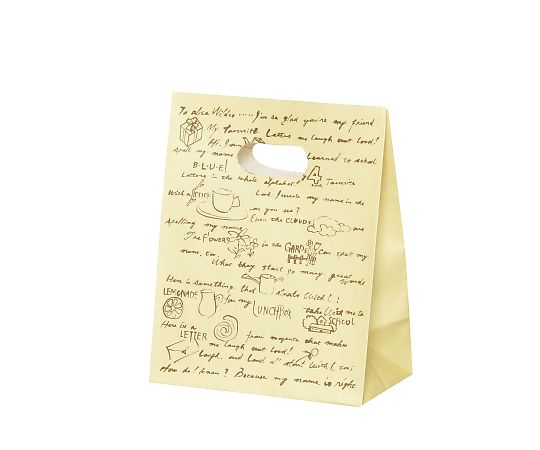 To alice Wildes ..... I'm so glad you're my friend
My favorite Letters me laugh out loud!
Hi, I'm
Spell my name Learned in school
B·L·U·E! 4
Letters in the whole alphabet! favorite
With a STICK Look I wrote my name in the
can you see?
Even the CLOUDS are
Spelling my name
The FLOWERS in the GARDEN Can spell my
name, too. What they start so many great words
Here is something that starts With L!
LEMONADE for my LUNCHBOX take With me to
SCHOOL
Here is a LETTER from magenta that makes
me laugh out loud!
laugh, and loud start with L too!
How do I know? Because my name is right